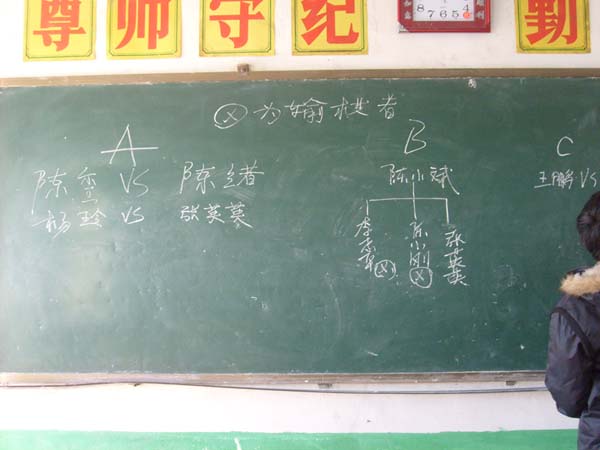 尊 师 守 纪 勤
8 7 6 5 4
ⓧ 为输棋者
A B C
陈 VS 陈 者
杨玲 VS 张英英
陈小斌
王鹏 VS
李志军 ⓧ
陈小刚 ⓧ
张英英